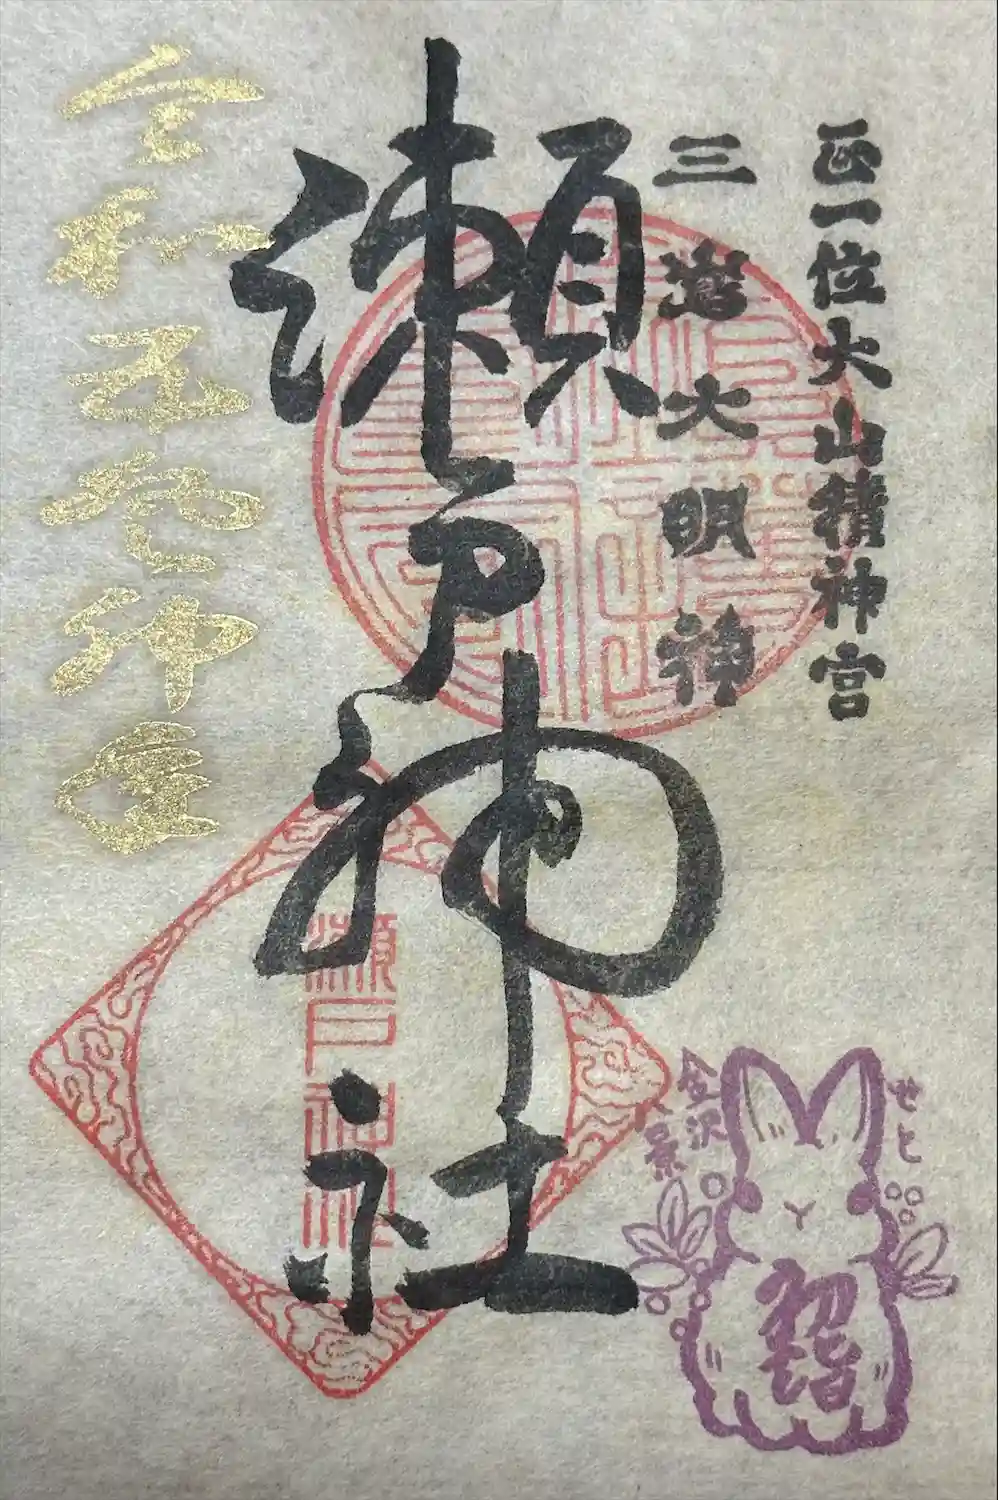 正一位大山積神宮
三嶌大明神
瀬戸神社
令和五癸卯神
瀬戸神社
せと
金沢
八景
初詣